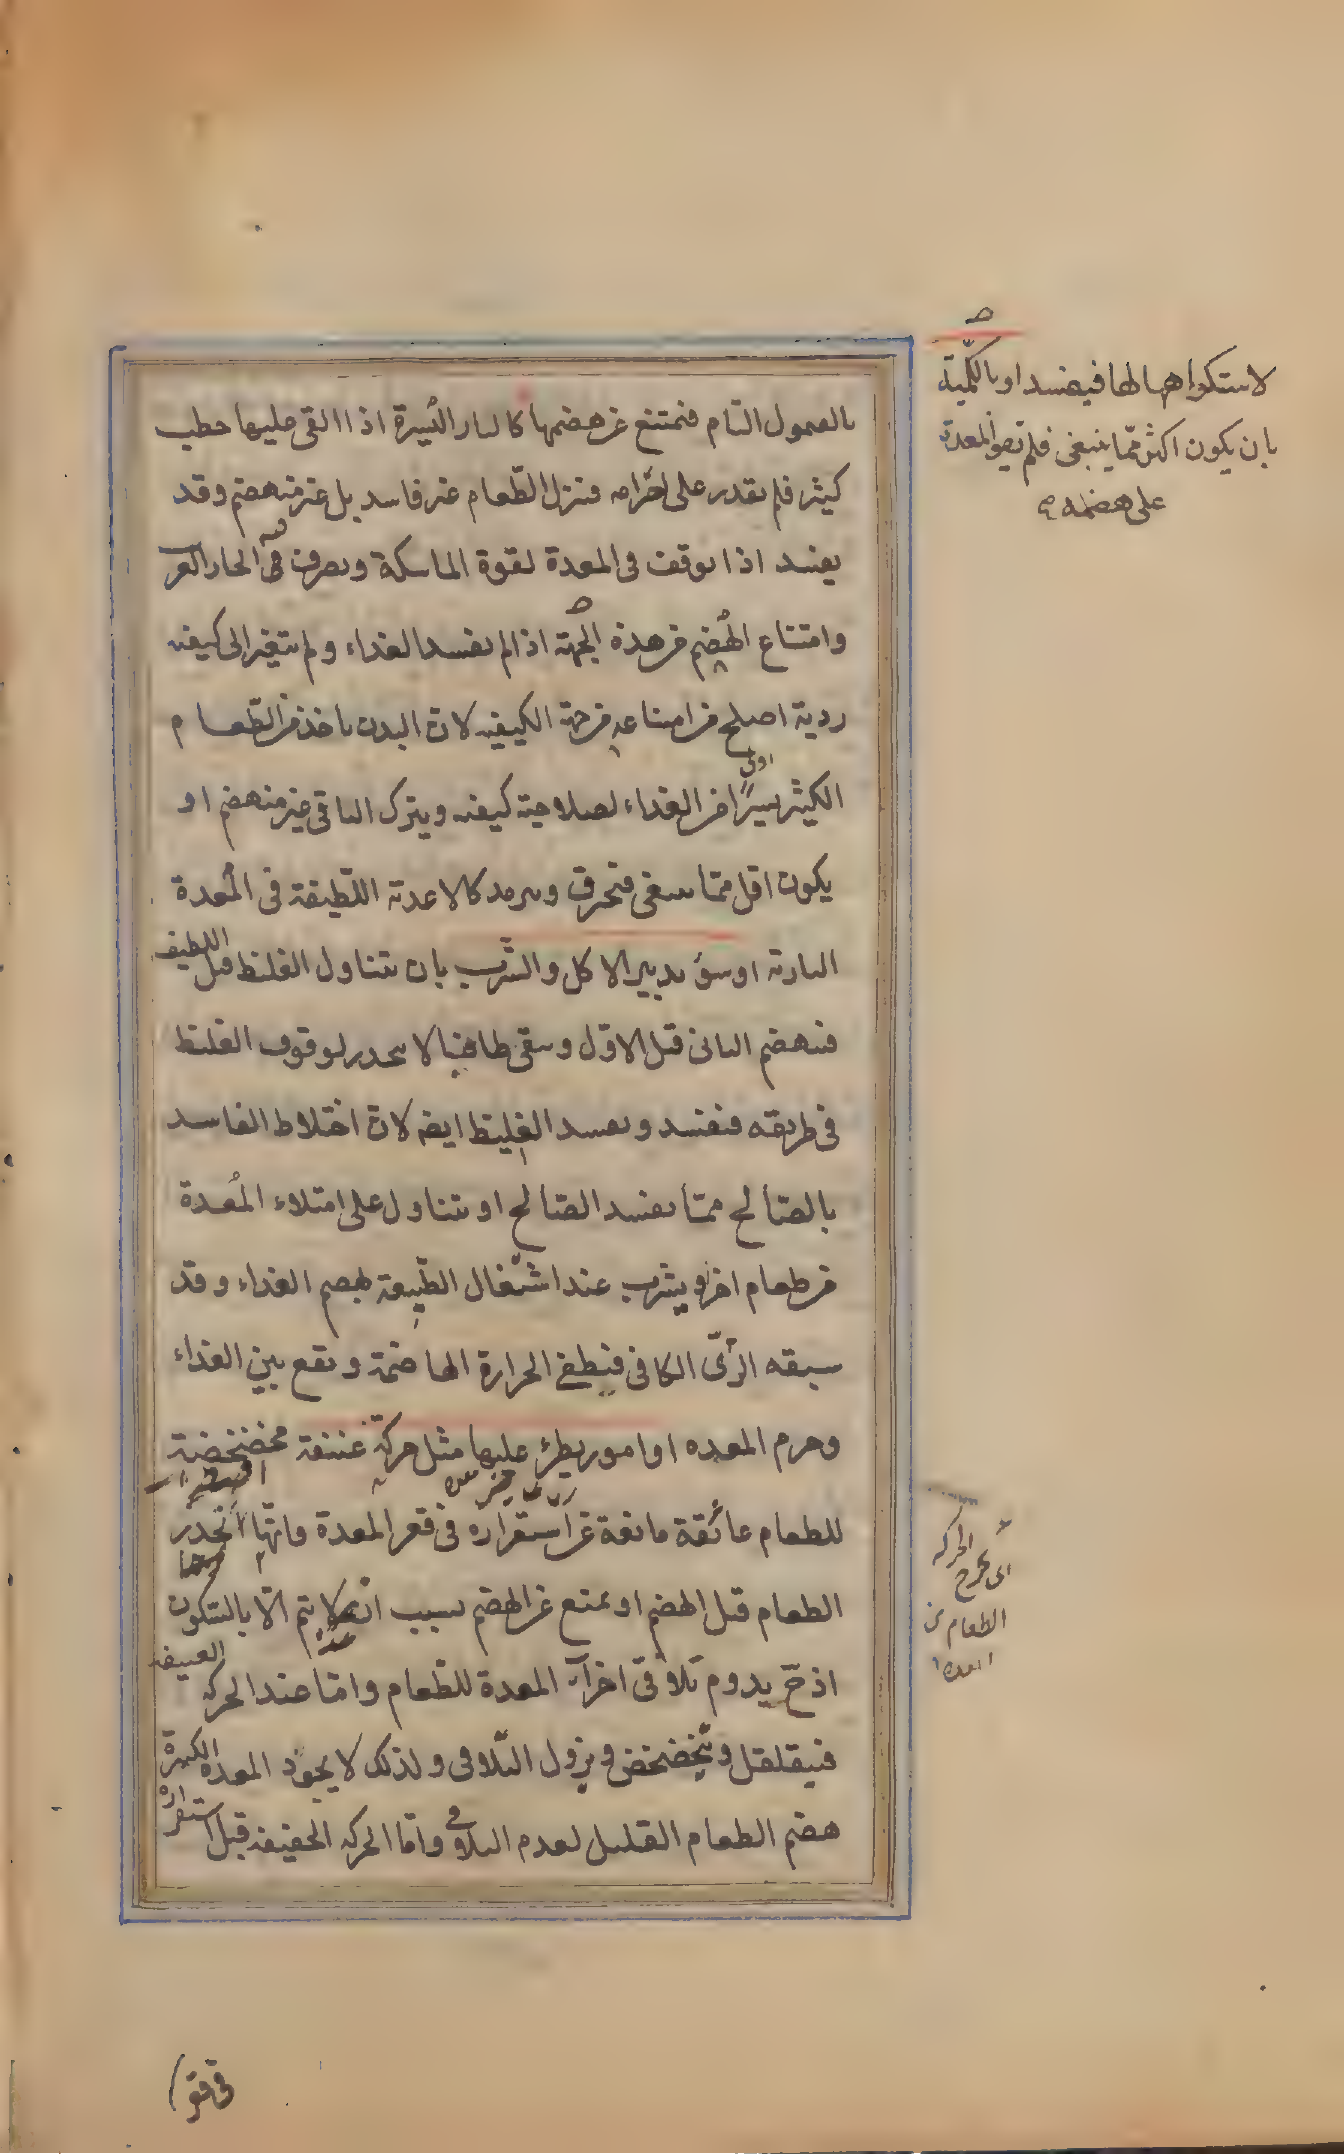 لاستكراهها لها فيفسد او بالكمية
بان يكون اكثر مما ينبغى فلم تقو المعدة
على هضمه
بالعمول التام فتمتنع عن هضمها كالنار اليسيرة اذا القى عليها حطب
كثير فلم يقدر على احراقه فينزل الطعام غير فاسد بل غير منهضم وقد
يفسد اذا توقف فى المعدة لقوة الماسكة وتصرف فيه الحار الغر
وامتناع الهضم من هذه الجهة اذا لم يفسد الغداء ولم يتغير الى كيفيه
ردية اصلح من امتناعه من جهة الكيفيه لان البدن ياخذ من الطعام
الكثير يسيرا من الغداء لصلاحية كيفيه ويترك الباقى غير منهضم او
يكون اقل مما ينبغى فتحرق وترمد كالاغدية اللطيفة فى المعدة
النارية او سوء تدبير الاكل والشرب بان يتناول الغليظ قبل اللطيف
فينهضم الثانى قبل الاول ويبقى طافيا لا ينحدر لوقوف الغليظ
فى طريقه فيفسد ويفسد الغليظ ايضا لان اختلاط الفاسد
بالصالح مما يفسد الصالح او يتناول على امتلاء المعدة
من طعام اخر او يشرب عند اشتغال الطبيعة بهضم الغداء وقد
سبقه الرى الكافى فينطفى الحرارة الهاضمة ويقع بين الغداء
وجرم المعده او امور يطرئ عليها مثل حركة عنيفة مخضخضة
للطعام عائقة مانعة عن استقراره فى قعر المعدة وانها انحدر
الطعام قبل الهضم او يمنع عن الهضم بسبب انه لا يتم الا بالسكون
اذ ح يدوم تلاقى اجزاء المعدة للطعام واما عند الحركه العنيفه
فيتقلقل ويتخضخض ويزول التلاقى ولذلك لا يجود المعدة الكبيرة
هضم الطعام القليل لعدم التلاقى واما الحركه الخفيفه قبل استقراره
الحركه
اى يخرج
الطعام من
المعده